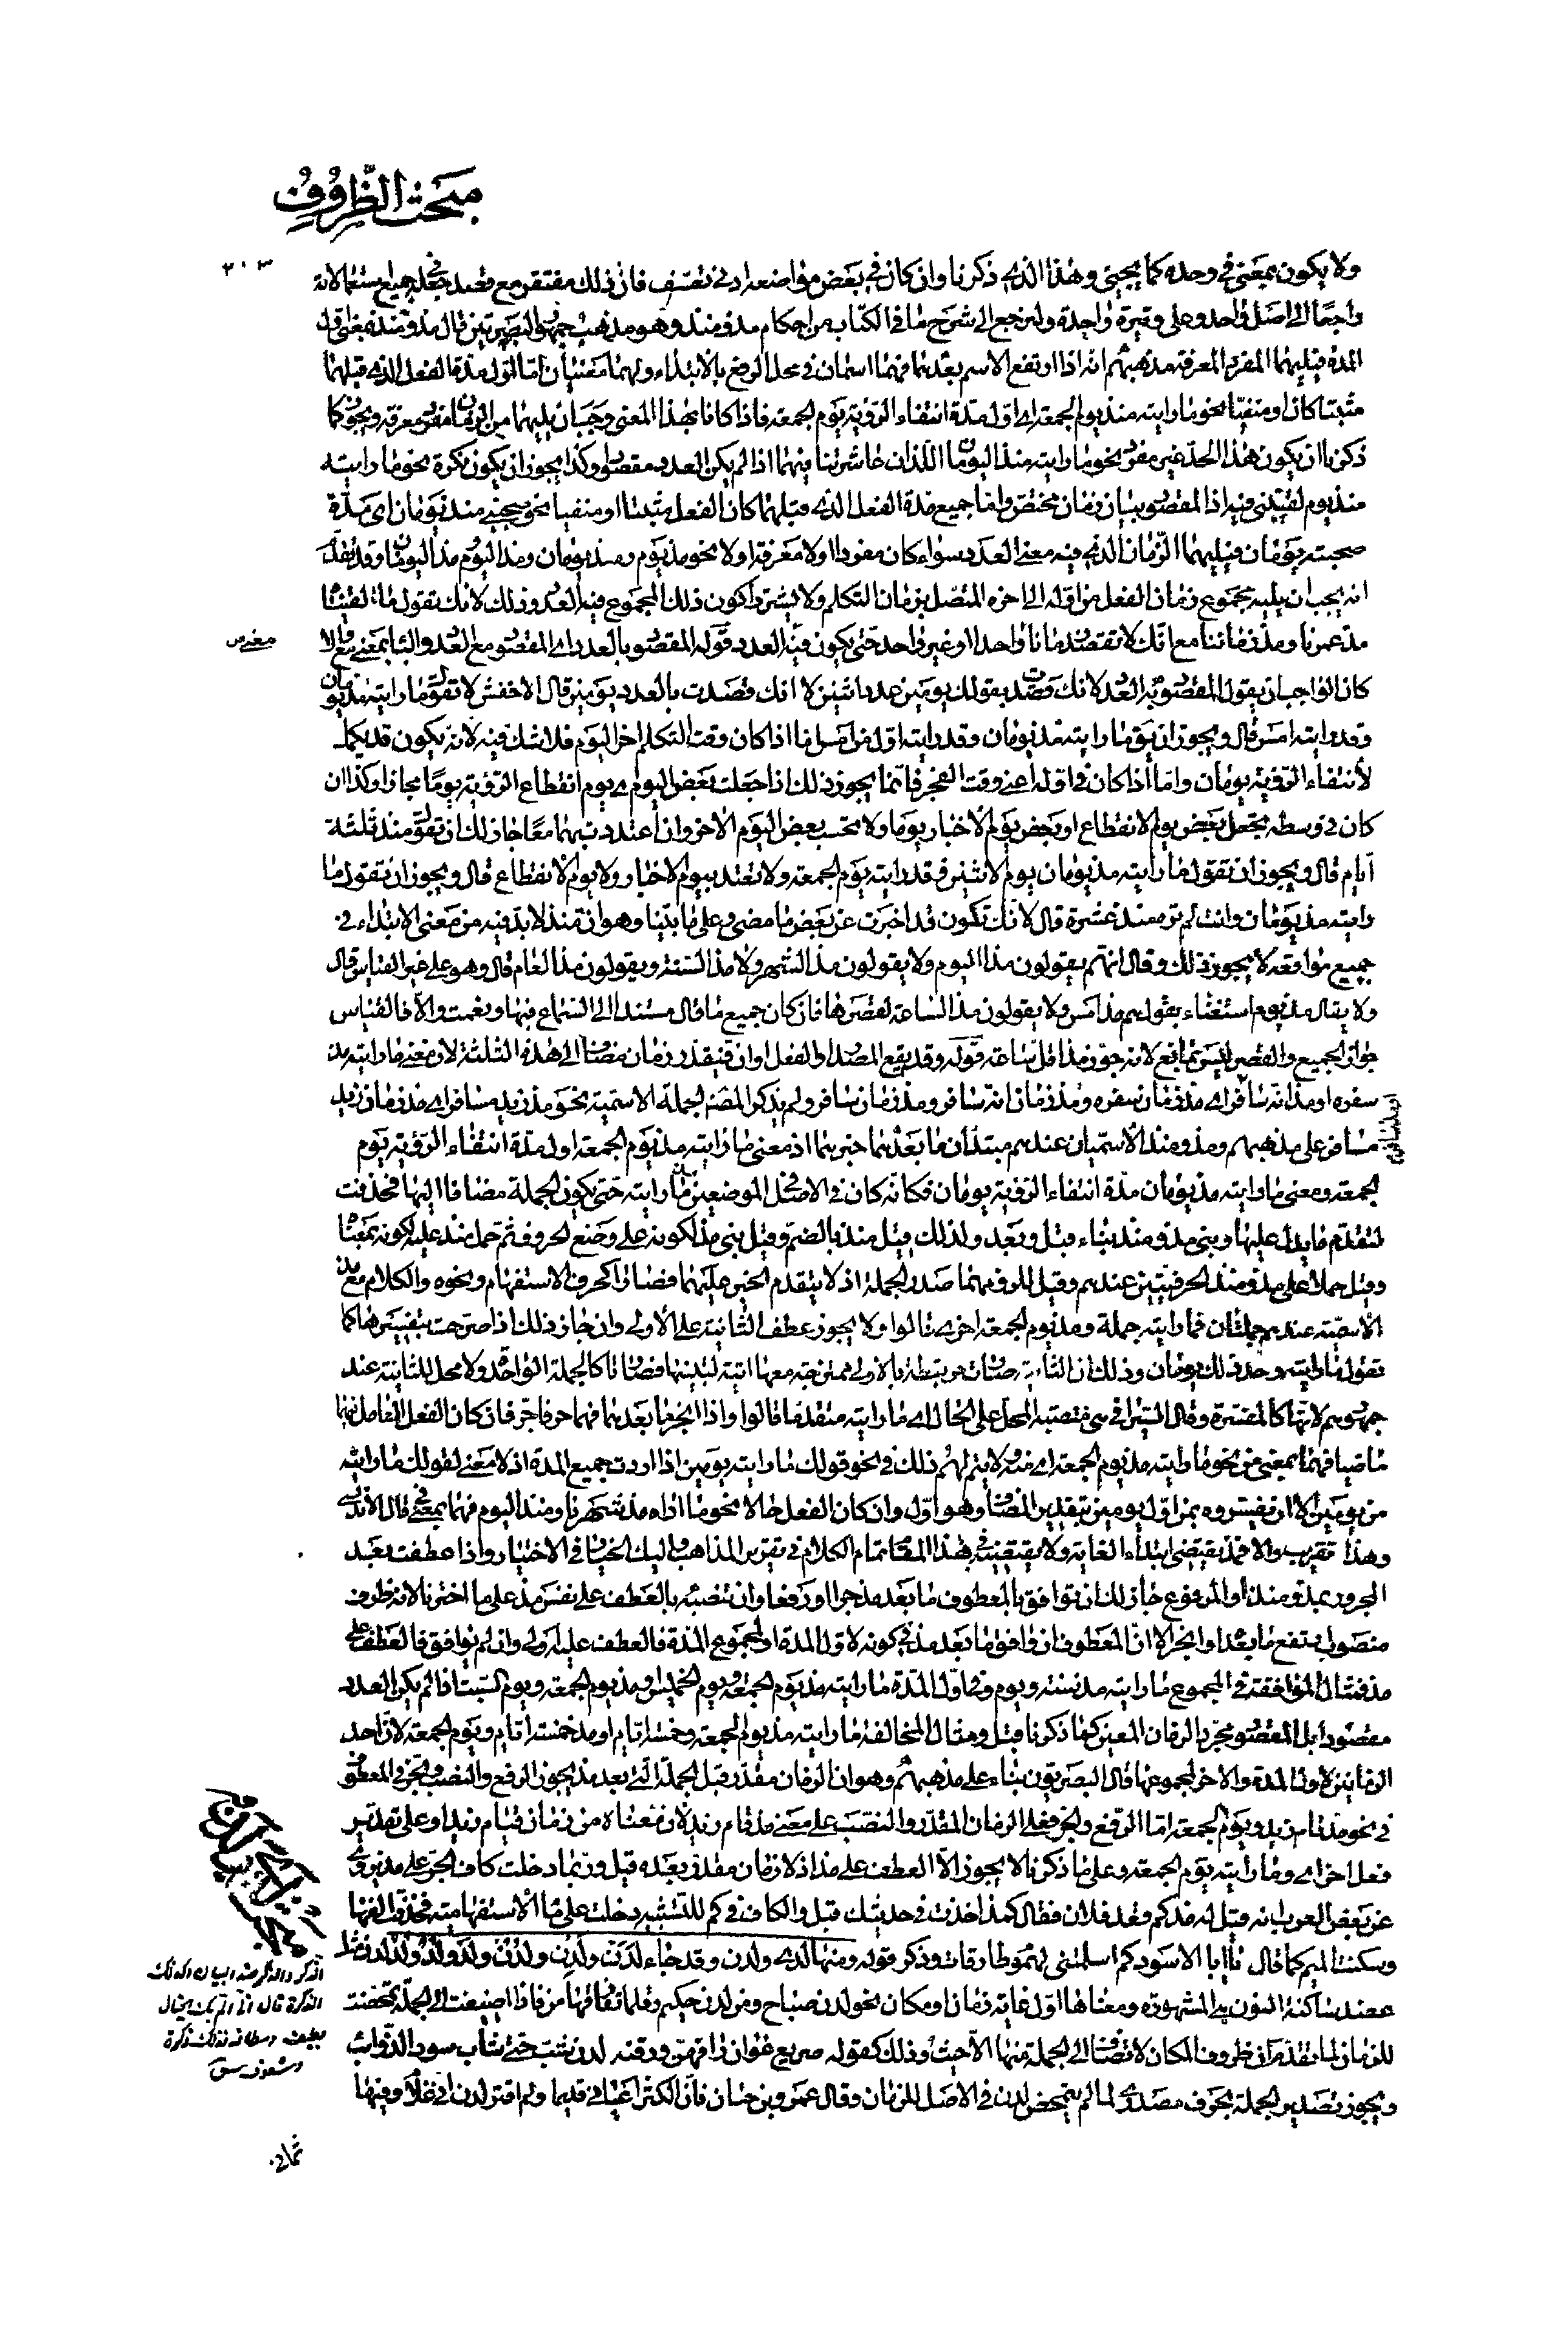 مبحث الظروف
٣٠٣
ولا يكون بمعنى في وحده كما يجيئ وهذا الذي ذكرنا وان كان في بعض مواضعه ادنى تعسف فان ذلك مغتفر مع قصد جعله في جميع استعمالاته
راجعًا الى اصل واحد وعلى وتيرة واحدة ولنرجع الى شرح ما في الكتاب من احكام مذ ومنذ وهو مذهب جمهور البصريين قال مذ ومنذ بمعنى اول
المدة فيليهما المفرد المعرفة مذهبهم انه اذا ارتفع الاسم بعدهما فهما اسمان في محل الرفع بالابتداء ولهما معنيان اما اول مدة الفعل الذي قبلهما
مثبتا كان او منفيّا نحو ما رايته منذ يوم الجمعة اي اول مدة انتفاء الرؤية يوم الجمعة فاذا كانا بهذا المعنى وجب ان يليهما من الزمان مفرد معرفة ويجوز كما
ذكرنا ان يكون هذا الحد غير مفرد نحو ما رايته منذ اليومان اللذان عاشرتنا فيهما اذا لم يكن العدد مقصودا وكذا يجوز ان يكون نكرة نحو ما رايته
منذ يوم لقيتني فيه اذ المقصود بيان زمان مختص واما جميع مدة الفعل الذي قبلهما كان الفعل مثبتا او منفيا نحو صحبني منذ يومان اي مدة
صحبته يومان فيليهما الزمان الذي فيه معنى العدد سواء كان مفردا او لا معرفة او لا نحو مذ يوم ومنذ يومان ومذ اليوم مذ اليومان وقد تقدّم
انه يجب ان يليه مجموع زمان الفعل من اوله الى اخره المتصل بزمان التكلم ولا يشترط كون ذلك المجموع فيه العدد وذلك لانك تقول ما لقيته
مذ عمرنا ومذ زماننا مع انك لا تقصد زمانا واحدا او غير واحد حتى يكون فيه العدد قوله المقصود بالعدد اي المقصود مع العدد والباء بمعنى مع والا
كان الواجب ان يقول المقصود به العدد لانك قصدت بقولك يومين عدد اثنين لا انك قصدت بالعدد يومين قال الاخفش لا تقول ما رايته مذ يومان
وقد رايته امس قال ويجوز ان يقال ما رايته مذ يومان وقد رايته اول من امس اما اذا كان وقت التكلم اخر اليوم فلا شك فيه لانه يكون قد تكمل
لانتفاء الرؤية يومان واما اذا كان في اوله اعني وقت الفجر فانما يجوز ذلك اذا جعلت بعض اليوم اي يوم انقطاع الرؤية يومًا مجازا وكذا ان
كان في وسطه تجعل بعض يوم الانقطاع او بعض يوم الاخبار يوما ولا تحسب بعض اليوم الاخر وان اعتددت بهما معًا جاز لك ان تقول منذ ثلثة
ايام قال ويجوز ان تقول ما رايته مذ يومان يوم الاثنين وقد رايته يوم الجمعة ولا تعتد بيوم الاخبار ولا يوم الانقطاع قال ويجوز ان تقول ما
رايته مذ يومان وانت لم تره منذ عشرة قال لانك تكون قد اخبرت عن بعض ما مضى وعلى ما بيّنا وهو ان منذ لا بد فيه من معنى الابتداء في
جميع مواقعه لا يجوز ذلك وقال انهم يقولون مذ اليوم ولا يقولون مذ الشهر ولا مذ السنة ويقولون مذ العام قال وهو على غير القياس قال
ولا يقال مذ يوم استغناء بقولهم مذ امس ولا يقولون مذ الساعة لقصرها فان كان جميع ما قال مستندا الى السماع فبها ونعمت والا فالقياس
جواز الجميع والقصر ليس بمانع لانه جوز مذ اقل ساعة قوله وقد يقع المصدر او الفعل او ان فيقدر زمان مضاف الى هذه الثلثة لان معنى ما رايته مذ
سفره او مذ انه سافر اي مذ زمان سفره ومذ زمان انه سافر ومذ زمان سافر ولم يذكر المصنف الجملة الاسمية نحو مذ زيد مسافر اي مذ زمان زيد
مسافر على مذهبهم ومذ ومنذ الاسميان عندهم مبتدآن ما بعدهما خبرهما اذ معنى ما رايته مذ يوم الجمعة اول مدة انتفاء الرؤية يوم
الجمعة ومعنى ما رايته مذ يومان مدة انتفاء الرؤية يومان فكانه كان في الاصل في الموضعين مذ ما رايته حتى يكون الجملة مضافا اليها فحذفت
لتقدم ما يدل عليها وبني مذ ومنذ بناء قبل وبعد ولذلك قيل منذ بالضم وقيل بني مذ لكونه على وضع الحروف ثم حمل منذ عليه لكونه بمعناه
وقيل حملا على مذ ومنذ الحرفيتين عندهم وقيل للزومهما صدر الجملة اذ لا يتقدم الخبر عليهما فصارا كحرف الاستفهام ونحوه والكلام مع مذ
الاسميّة عندهم جملتان فما رايته جملة ومذ يوم الجمعة اخرى قالوا ولا يجوز عطف الثانية على الاولى وان جاز ذلك اذا صرحت بتفسيرها كما
تقول ما رايته ومدة ذلك يومان وذلك ان الثانية صارت مرتبطة بالاولى ممتزجة معها آتية لتبيينها فصارتا كالجملة الواحدة ولا محل للثانية عند
جمهورهم لانها كالمفسرة وقال السيرافي هي منتصبة المحل على الحال اي ما رايته متقدما قالوا واذا انجر ما بعدهما فهما حرفا جر فان كان الفعل العامل فيهما
ماضيا فهما بمعنى من نحو ما رايته مذ يوم الجمعة اي منه ولا يتم لهم ذلك في نحو قولك ما رايته يومين اذا اردت جميع المدة اذ لا معنى لقولك ما رايته
من يومين الا ان تفسره بمن اول يومين بتقدير المضاف وهو اول وان كان الفعل حالا نحو ما اراه مذ شهرنا ومنذ اليوم فهما بمعنى في قال الاندلسي
وهذا تقريب والا فمذ يقتضي ابتداء الغاية ولا يقتضيه في هذا المقام تمام الكلام في تقرير المذاهب واليك الخيار في الاختيار واذا عطفت بعد
المجرور بمذ ومنذ او المرفوع جاز لك ان توافق بالمعطوف ما بعد مذ جرا او رفعا وان تنصبه بالعطف على نفس مذ على ما اخترنا لانه ظرف
منصوب ارتفع ما بعده او انجر الا ان المعطوف ان وافق ما بعد مذ في كونه لاول المدة او لمجموع المدة فالعطف عليه اولى وان لم يوافق فالعطف على
مذ فمثال الموافقة في المجموع ما رايته مذ سنة ويوم وفي اول المدة ما رايته مذ يوم الجمعة ويوم الخميس ومذ يوم الجمعة ويوم السبت اذا لم يكن العدد
مقصودا بل المقصود مجرد الزمان المعين كما ذكرنا قبل ومثال المخالفة ما رايته مذ يوم الجمعة وخمسة ايام او مذ خمسة ايام ويوم الجمعة لان احد
الزمانين لاول المدة والاخر لمجموعها قال البصريون بناء على مذهبهم وهو ان الزمان مقدر قبل الجملة التي بعد مذ يجوز الرفع والنصب والجر في المعطوف
في نحو مذ قام زيد ويوم الجمعة اما الرفع والجر فعلى الزمان المقدر والنصب على معنى مذ قام زيد لان معناه من زمان قيام زيد او على تقدير
فعل اخر اي وما رايته يوم الجمعة وعلى ما ذكرنا لا يجوز الا العطف على مذ اذ لا زمان مقدر بعده قيل وربما دخلت كاف الجر على مذ يروى
عن بعض العرب انه قيل له مذ كم وقد فلان فقال كمذ اخذت في حديثك قيل والكاف في كم للتشبيه دخلت على ما الاستفهامية فحذف الفها
وسكنت الميم كما قال يا ابا الاسود كم اسلمتني لهموم طارقات وذكر قوله ومنها لدى ولدن وقد جاء لدن ولدن ولدن ولد ولد ولد لدن مثل
عضد ساكنة النون هي المشهورة ومعناها اول غاية زمان او مكان نحو لدن صباح ومن لدن حكيم وقلما تفارقها من فاذا اضيفت الى الجملة تمحضت
للزمان لما تقدم ان ظروف المكان لا يضاف الى الجملة منها الا حيث وذلك كقوله صريع غوان راقهن ورقنه لدن شب حتى شاب سود الذوائب
ويجوز تصدير الجملة بحرف مصدري لما لم يتمحض لدن في الاصل للزمان وقال عمرو بن حسان فان الكثر اعياني قديما ولم اقتر لدن اني غلام وفيها
ثماني